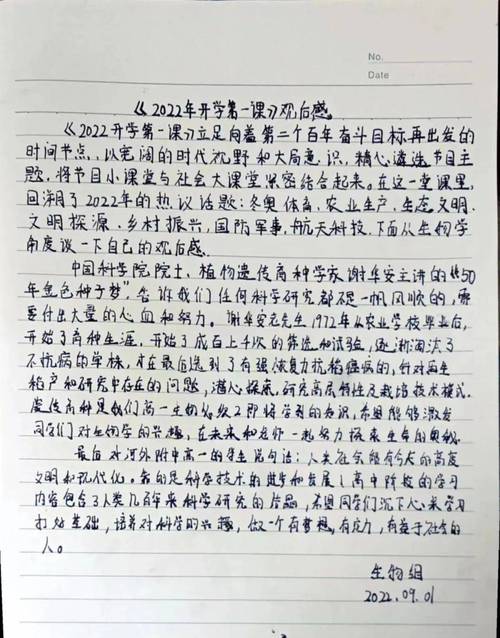 No.
Date
《2022年开学第一课》观后感
《2022开学第一课》立足向着第二个百年奋斗目标再出发的
时间节点，以宽阔的时代视野和大局意识，精心遴选节目主
题，将节目小课堂与社会大课堂紧密结合起来。在这一堂课里，
回溯了2022年的热议话题：冬奥体育、农业生产、生态文明、
文明探源、乡村振兴，国防军事，航天科技，下面从生物学
角度谈一下自己的观后感。
中国科学院院士，植物遗传育种学家谢华安主讲的《50
年金色种子梦》告诉我们任何科学研究都不是一帆风顺的，需
要付出大量的心血和努力。谢华安老先生1972年从农业学校毕业后，
开始了育种生涯，开始了成百上千次的筛选和试验，逐渐淘汰了
不抗病的单株，才在最后选到了有强恢复力抗稻瘟病的，针对再生
稻产和研究中存在的问题，潜心探索，研究高产特性及栽培技术模式。
遗传育种是我们高一生物必修2即将学到的知识，希望能够激发
同学们对生物学的兴趣，在未来和老师一起努力探索生命的奥秘。
最后对河外附中高一的学生说句话：人类社会能有今天的高度
文明和现代化，靠的是科学技术的进步和发展！高中阶段的学习
内容包含了人类几百年来科学研究的结晶，希望同学们沉下心来学习
打好基础，培养对科学的兴趣，做一个有梦想，有定力，有益于社会的
人。
生物组
2022.09.01